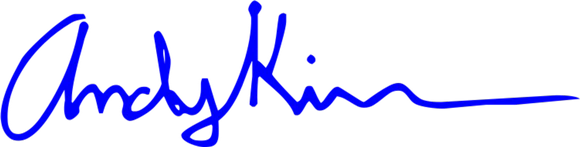 Andy Kim